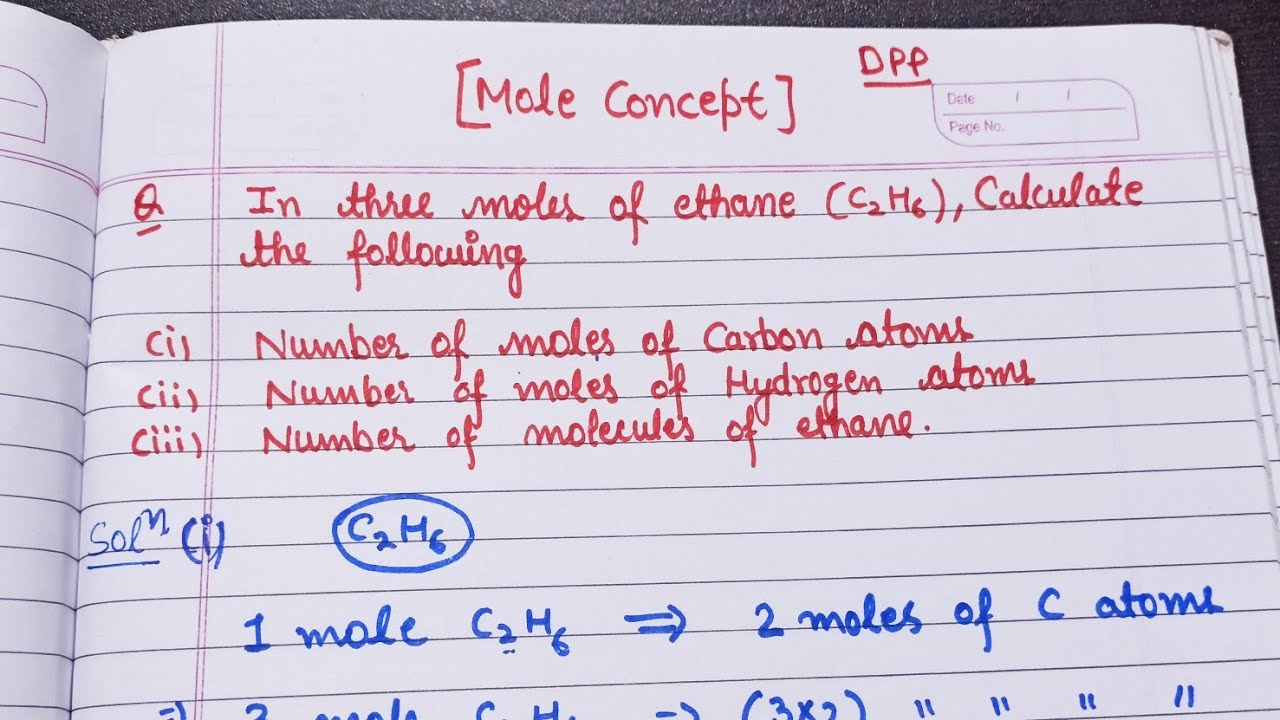 DPP
[Mole Concept]
Date / /
Page No.
Q In three moles of ethane (C₂H₆), Calculate
the following
(i) Number of moles of Carbon atoms
(ii) Number of moles of Hydrogen atoms
(iii) Number of molecules of ethane.
Solⁿ (i) C₂H₆
1 mole C₂H₆ ⇒ 2 moles of C atoms
⇒ 3 mole C₂H₆ ⇒ (3×2) " " " "